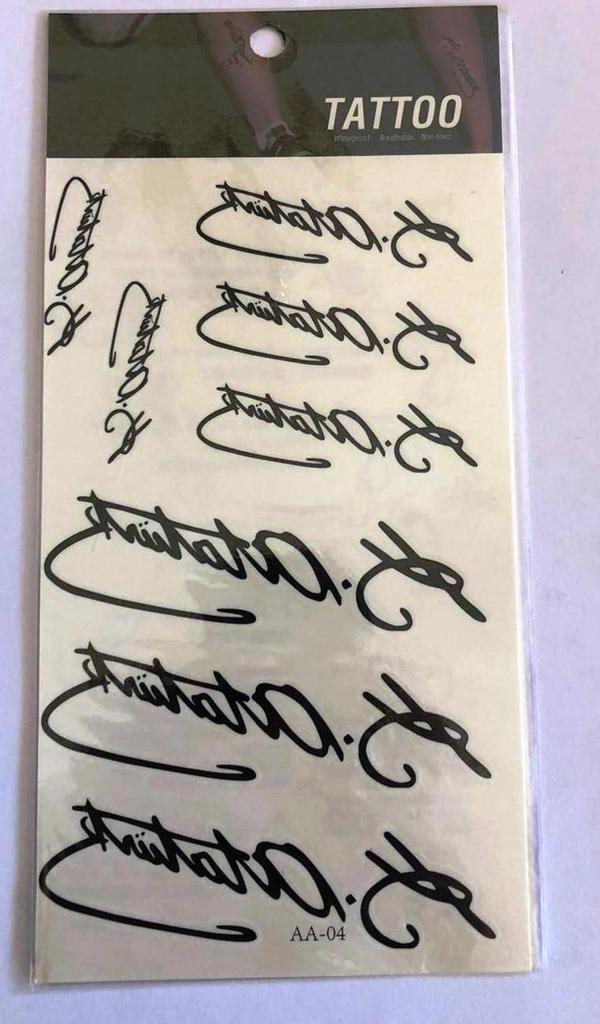 TATTOO
Waterproof. Breathable. Non-toxic
K. Atatürk
K. Atatürk
K. Atatürk
K. Atatürk
K. Atatürk
K. Atatürk
K. Atatürk
K. Atatürk
AA-04